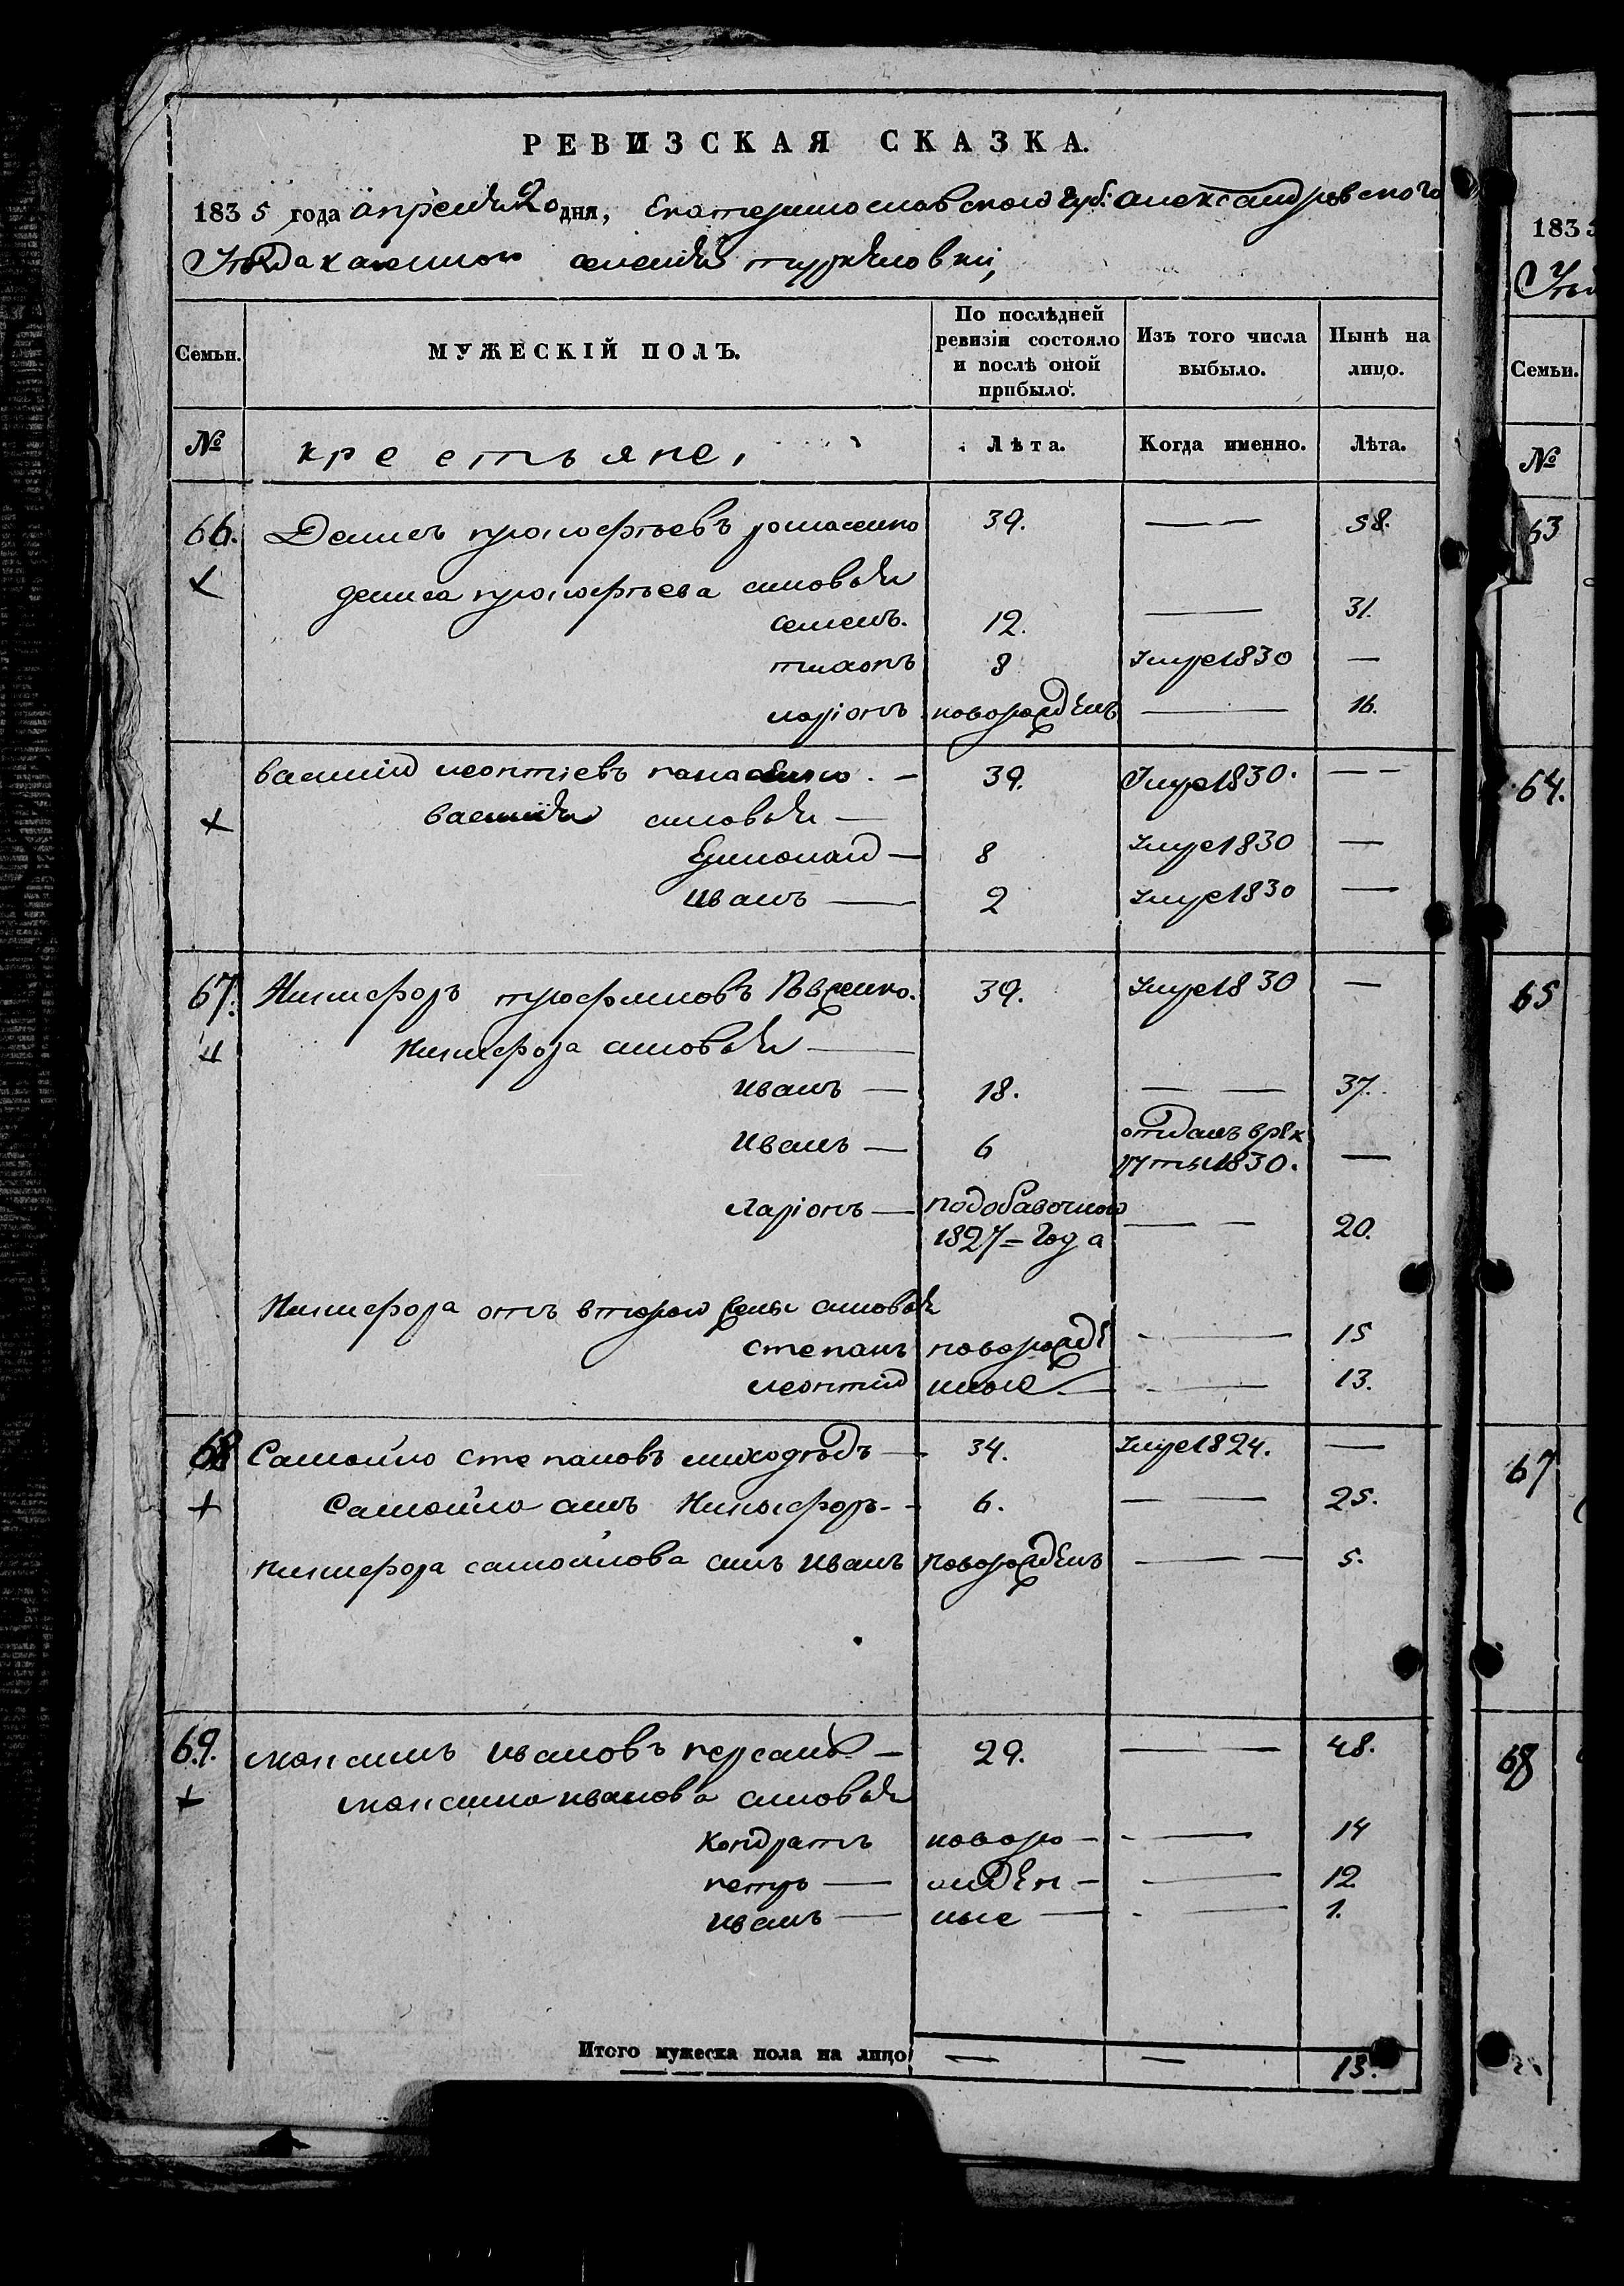 РЕВИЗСКАЯ СКАЗКА.
1835 года апреля 20 дня, Екатеринославской губ: александровского
Уезда казенного селения туркеновки,
Семьи. МУЖЕСКІЙ ПОЛЪ. По послѣдней ревизіи состояло и послѣ оной прибыло. Изъ того числа выбыло. Нынѣ на лицо.
№ крестьяне, Лѣта. Когда именно. Лѣта.
66. Денисъ прокофьевъ 39. — — 58.
дениса прокофьева сыновья
семенъ. 12. — 31.
тихонъ 8 Умре 1830 —
ларіонъ новорожденъ — 16.
василій леонтіевъ панасенко. — 39. Умре 1830. — —
василія сыновья —
Ермолай — 8 Умре 1830 —
иванъ — 2 Умре 1830 —
67. Никифоръ трофимовъ 39. Умре 1830 —
Никифора сыновья —
иванъ — 18. — — 37.
иванъ — 6 отданъ врек
руты 1830. —
ларіонъ — подобавочной
1827 = года — — 20.
Никифора отъ второй жены сыновья
степанъ новорожде — 15
леонтій ные — — 13.
68 Самойло степановъ лиходѣдъ — 34. Умре 1824. —
Самойла сынъ Никифоръ - - 6. — — 25.
никифора самойлова сынъ иванъ новорожденъ — — 5.
69. максимъ ивановъ 29. — — 48.
максима иванова сыновья
кондратъ новоро - - — 14
петръ — жден - — 12
иванъ — ные — - — 1.
Итого мужеска пола на лицо — — 13.
183
Семьи.
№
63
64.
65
67
68